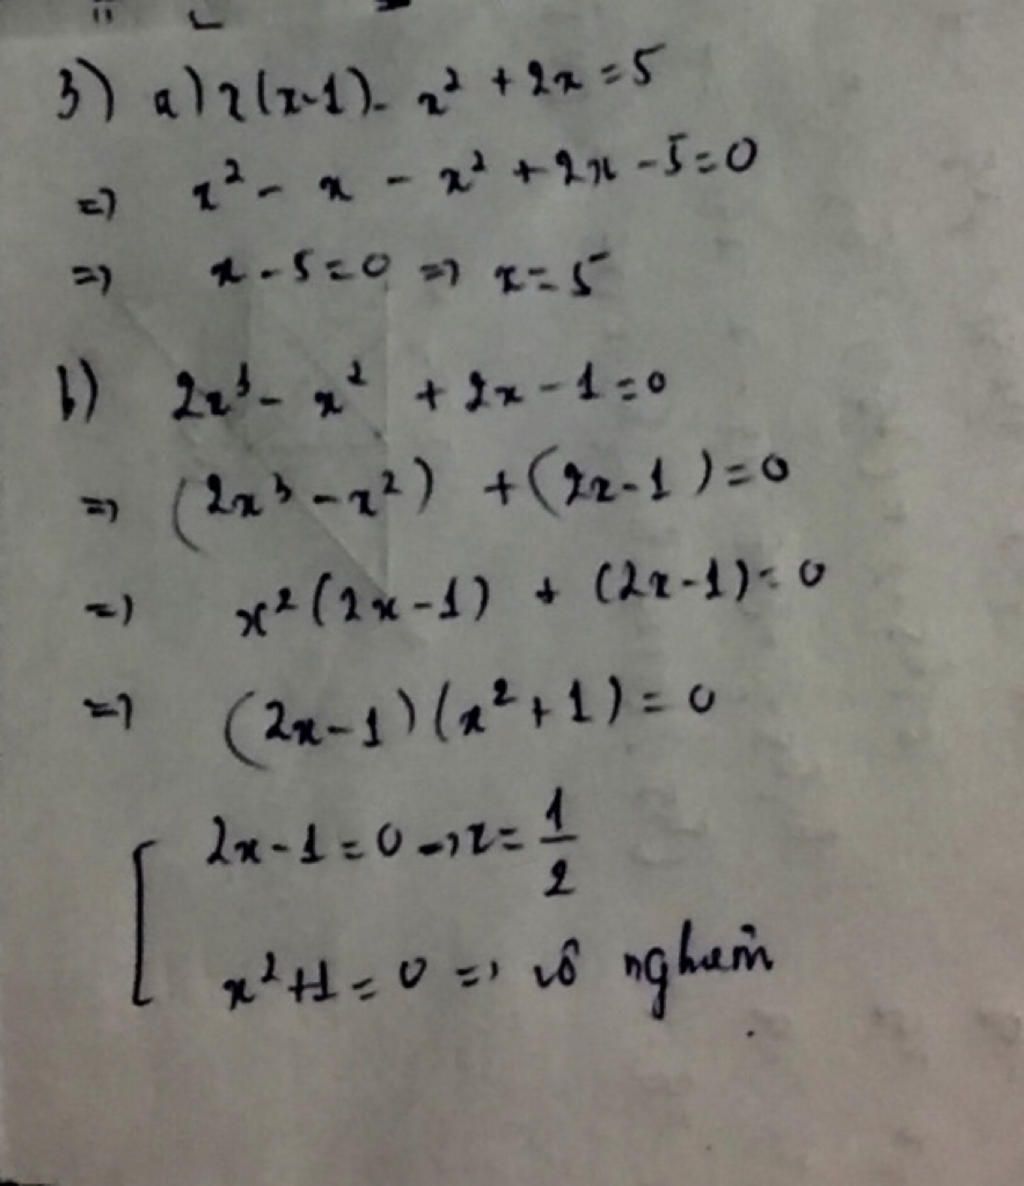 3) a) x(x-1) - x² + 2x = 5
=> x² - x - x² + 2x - 5 = 0
=> x - 5 = 0 => x = 5
b) 2x³ - x² + 2x - 1 = 0
=> (2x³ - x²) + (2x - 1) = 0
=> x²(2x - 1) + (2x - 1) = 0
=> (2x - 1)(x² + 1) = 0
2x - 1 = 0 => x = 1/2
x² + 1 = 0 => vô nghiệm